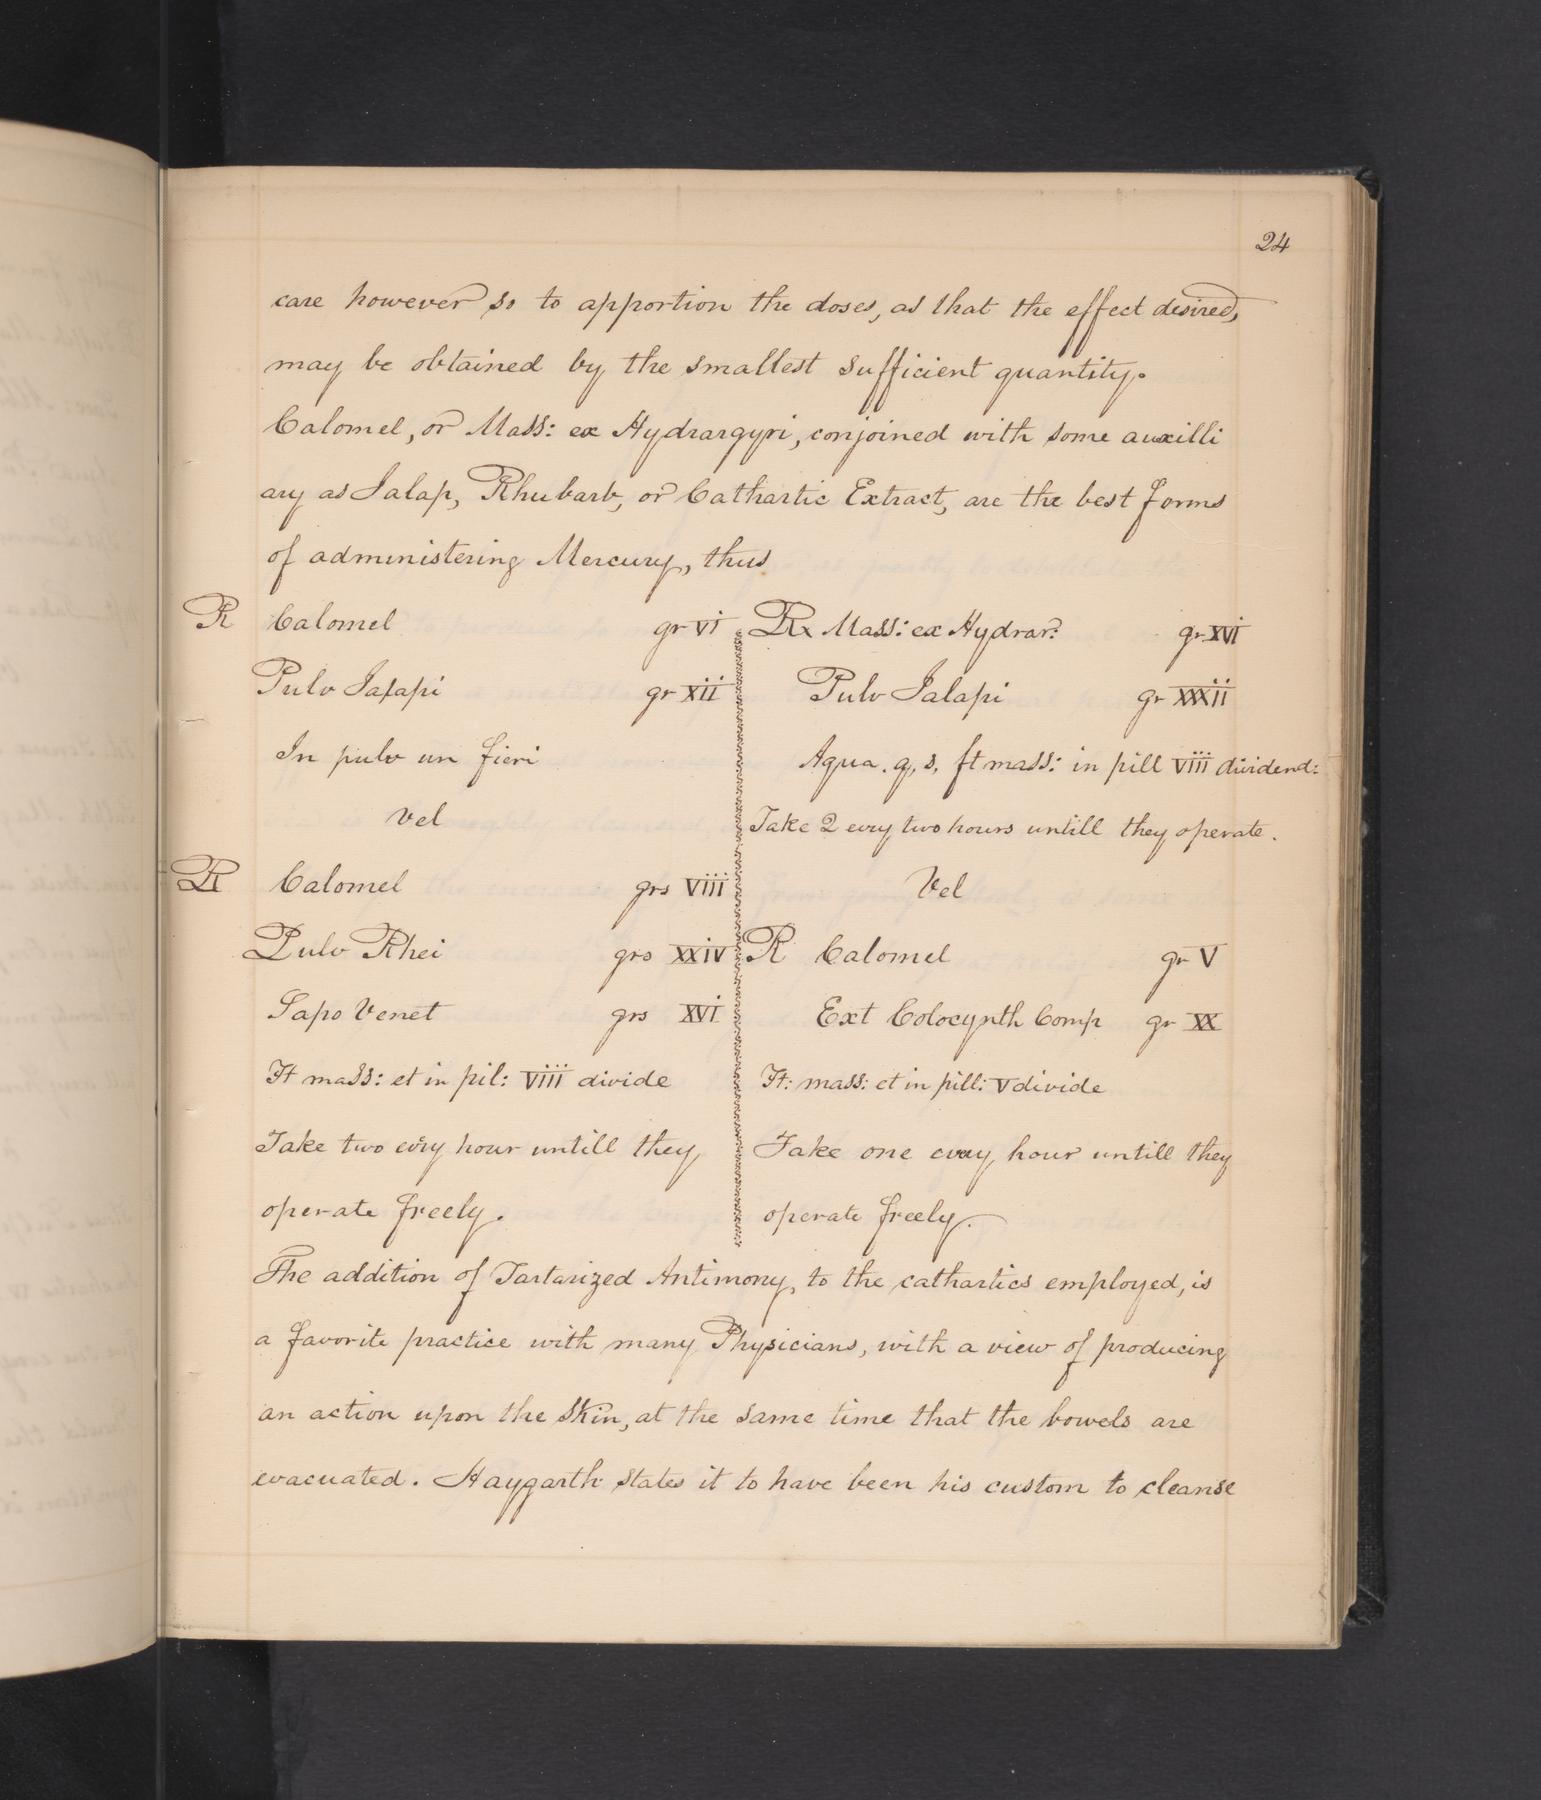 24
care however so to apportion the doses, as that the effect desired,
may be obtained by the smallest sufficient quantity.
Calomel, or Mass: ex Hydrargyri, conjoined with some auxilli
ary as Jalap, Rhubarb, or Cathartic Extract, are the best forms
of administering Mercury, thus
R Calomel gr vi
Pulv Jalapi gr xii
In pulv un fieri
Vel
R Calomel grs viii
Pulv Rhei grs xxiv
Sapo Venet grs xvi
Ft mass: et in pil: viii divide
Take two evry hour untill they
operate freely.
Rx Mass: ex Hydrar: gr xvi
Pulv Jalapi gr xxxii
Aqua. q, s, ft mass: in pill viii dividend:
Take 2 evry two hours untill they operate.
Vel
R Calomel gr V
Ext Colocynth Comp gr XX
Ft: mass: et in pill: V divide
Take one evry hour untill they
operate freely.
The addition of Tartarized Antimony, to the cathartics employed, is
a favorite practice with many Physicians, with a view of producing
an action upon the skin, at the same time that the bowels are
evacuated. Haygarth states it to have been his custom to cleanse